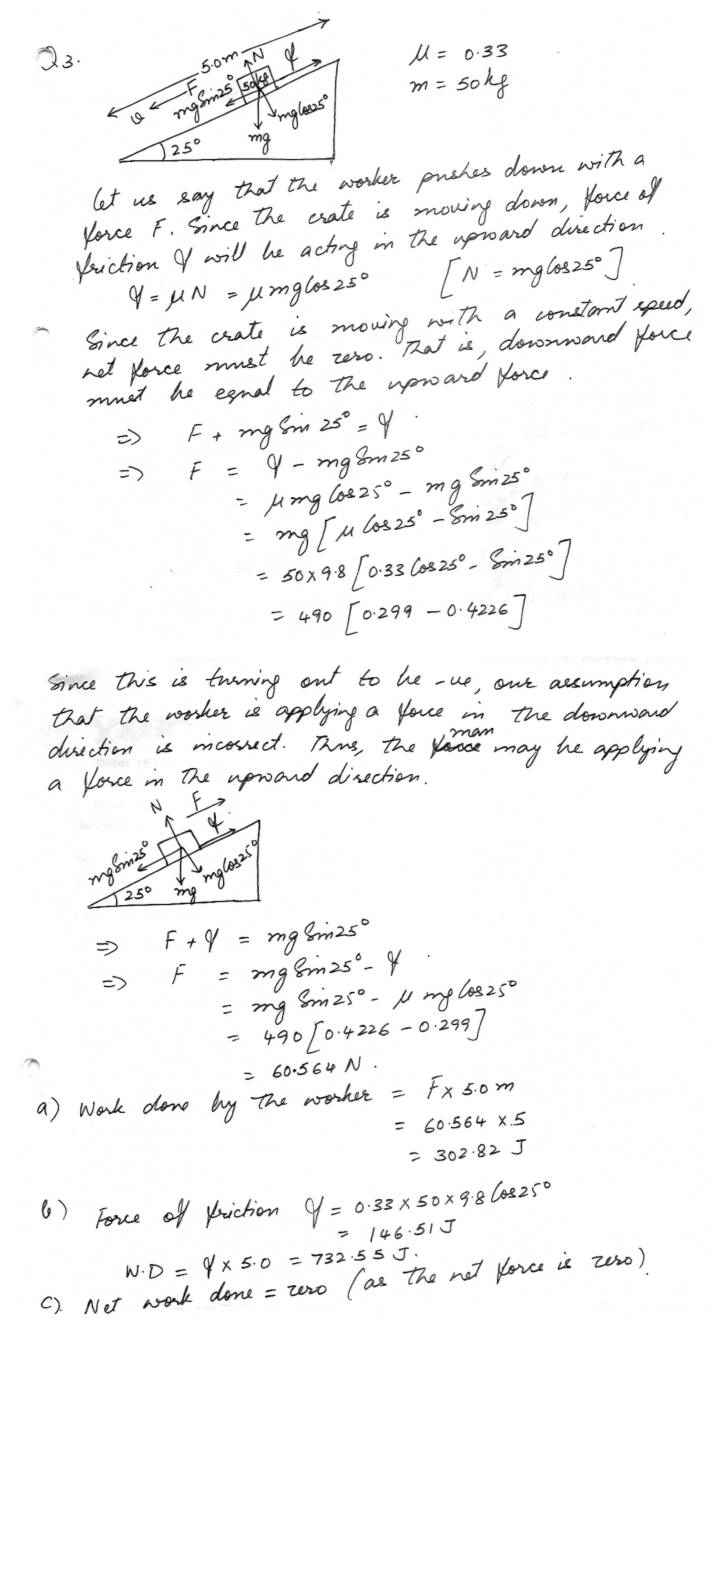 Q3.
5.0m
N
f
F
v
mgSin25°
50kg
mgCos25°
mg
25°
μ = 0.33
m = 50kg
Let us say that the worker pushes down with a
force F. Since the crate is moving down, force of
friction f will be acting in the upward direction.
f = μN = μmgCos25° [N = mgCos25°]
Since the crate is moving with a constant speed,
net force must be zero. That is, downward force
must be equal to the upward force.
=> F + mg Sin 25° = f
=> F = f - mg Sin25°
= μmg Cos25° - mg Sin25°
= mg [μ Cos 25° - Sin 25°]
= 50x9.8 [0.33 Cos25° - Sin25°]
= 490 [0.299 - 0.4226]
Since this is turning out to be -ve, our assumption
that the worker is applying a force in the downward
direction is incorrect. Thus, the man may be applying
a force in the upward direction.
N
F
f
mgSin25°
mgCos25°
mg
25°
=> F + f = mg Sin25°
=> F = mg Sin25° - f
= mg Sin25° - μ mg Cos25°
= 490 [0.4226 - 0.299]
= 60.564 N.
a) Work done by the worker = F x 5.0 m
= 60.564 x.5
= 302.82 J
b) Force of friction f = 0.33 x 50 x 9.8 Cos25°
= 146.51 J
W.D = f x 5.0 = 732.55 J.
C). Net work done = zero (as the net force is zero).